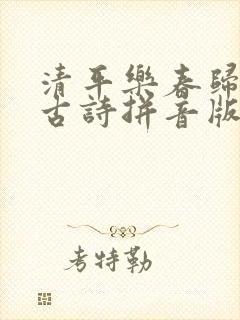 清平樂春歸
古詩拼音版
考特勒